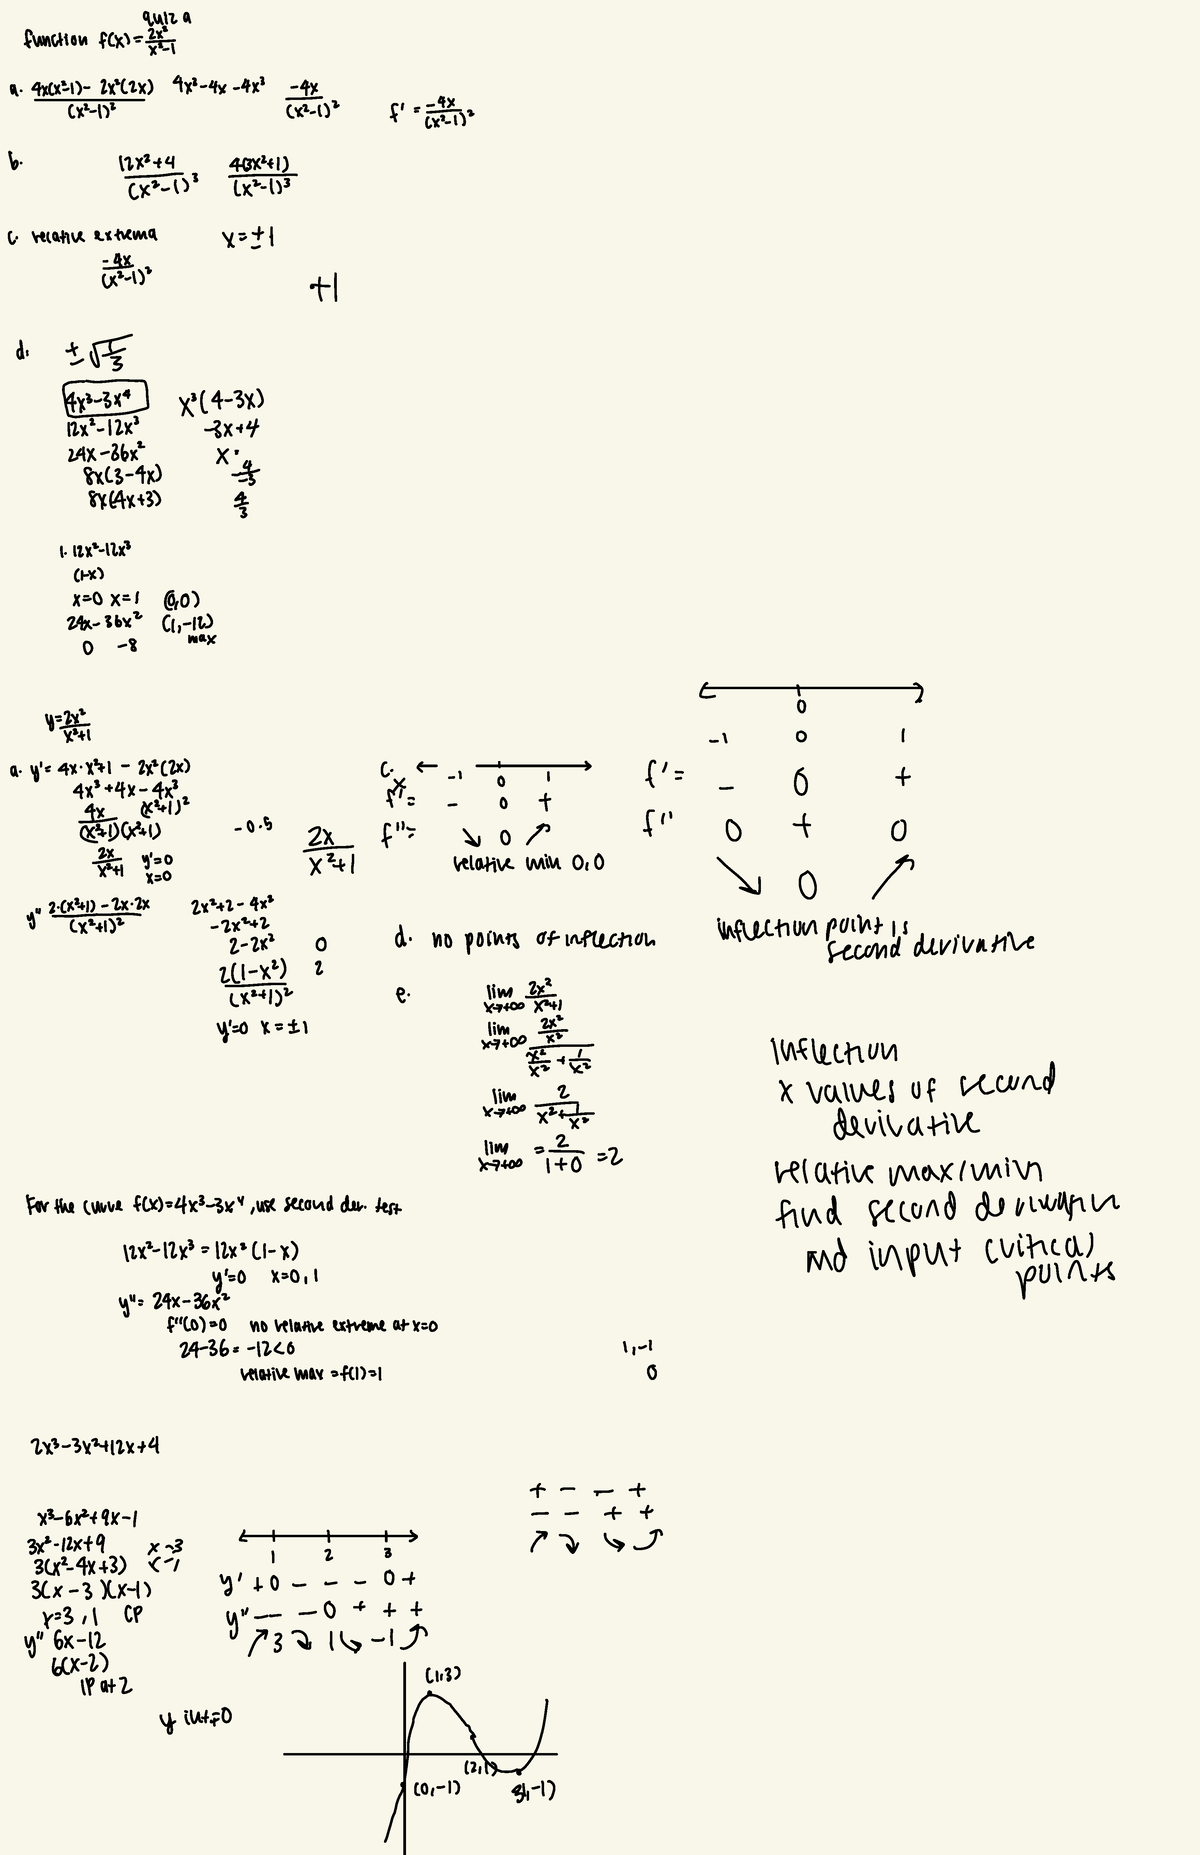 quiz a
function f(x) = 2x²/x²-1
a. 4x(x²-1) - 2x²(2x)/(x²-1)² 4x³-4x-4x³ -4x/(x²-1)² f' = -4x/(x²-1)²
b. 12x²+4/(x²-1)³ 4(3x²+1)/(x²-1)³
c. relative extrema x = ±1
-4x/(x²-1)²
+1
d. ±√1/3
4x³-3x⁴ x³(4-3x)
12x²-12x³ -3x+4
24x-36x² x
8x(3-4x) 4/-3
8x(-4x+3) 4/3
1. 12x²-12x³
(1-x)
x=0 x=1 (0,0)
24x-36x² (1,-12)
0 -8 max
y = 2x²/x²+1
a. y' = 4x·x²+1 - 2x²(2x)
4x³+4x-4x³
4x (x²+1)²
(x²+1)(x²+1)
2x/x²+1 y'=0
x=0
-0.5
2x/x²+1
y'' 2·(x²+1)-2x·2x/(x²+1)² 2x²+2-4x²
-2x²+2
2-2x² 0
2(1-x²)/(x²+1)² 2
y'=0 x=±1
c.
x -1 0 1
f'= - 0 +
f''= ↘ 0 ↗
relative min 0,0
0
-1 0 1
f'= - 0 +
f'' 0 + 0
↘ 0 ↗
inflection point is
second derivative
d. no points of inflection
e. lim x→+∞ 2x²/x²+1
lim x→+∞ 2x²/x² / x²/x² + 1/x²
lim x→+∞ 2/x²+1/x²
lim x→+∞ = 2/1+0 = 2
Inflection
x values of second
derivative
relative max/min
find second derivative
and input critical
points
For the curve f(x)=4x³-3x⁴, use second der. test
12x²-12x³ = 12x²(1-x)
y'=0 x=0,1
y''= 24x-36x²
f''(0)=0 no relative extreme at x=0
24-36 = -12<0
relative max = f(1)=1
1,-1
0
2x³-3x²+12x+4
x³-6x²+9x-1
3x²-12x+9 x-3
3(x²-4x+3) x-1
3(x-3)(x-1)
x=3,1 CP
y'' 6x-12
6(x-2)
IP at 2
y int=0
1 2 3
y' +0 - - - 0 +
y'' - - 0 + + +
↗ 3 ↘ 1 ↘ -1 ↗
+ - - +
- - + +
↗ ↘ ↘ ↗
(1,3)
(2,1)
(0,-1)
3,-1)